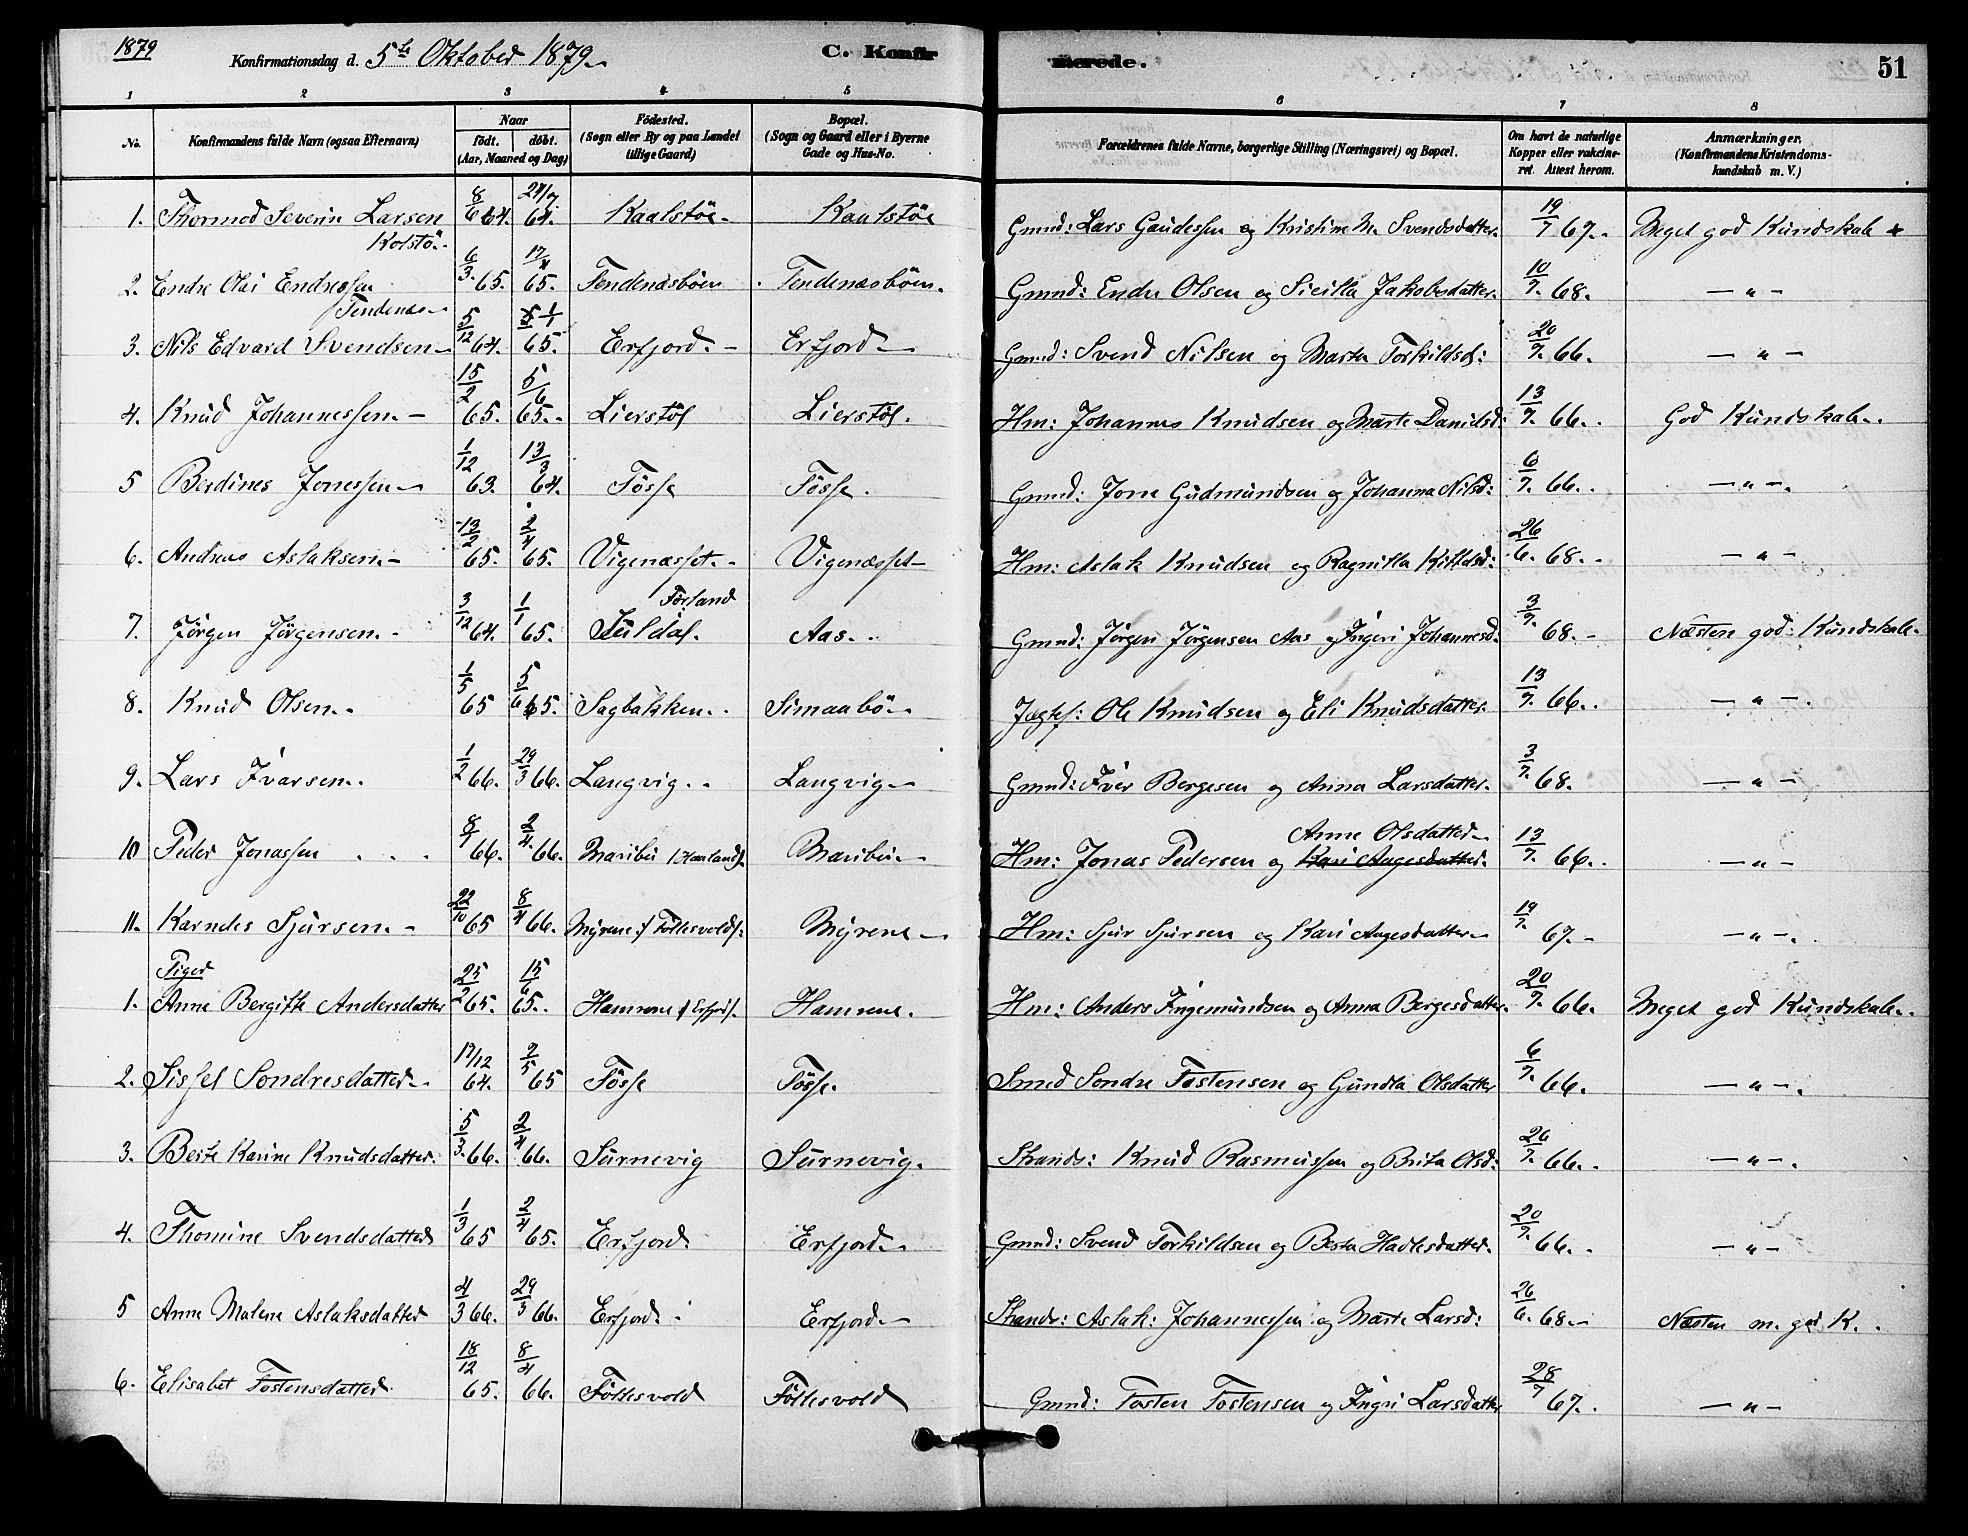 1879
Konfirmationsdag d. 5te Oktober 1879.
C. Konfirmerede.
51
1 2 3 4 5 6 7 8
No.
Konfirmandens fulde Navn (ogsaa Efternavn)
Naar
født. døbt.
(Aar, Maaned og Dag)
Fødested.
(Sogn eller By og paa Landet
tillige Gaard)
Bopæl.
(Sogn og Gaard eller i Byerne
Gade og Hus-No.
Forældrenes fulde Navne, borgerlige Stilling (Næringsvei) og Bopæl.
Om havt de naturlige
Kopper eller vakcine-
ret. Attest herom.
Anmærkninger.
(Konfirmandens Kristendoms-
kundskab m. V.)
1. Thormod Severin Larsen Kolstö 8/6 64. 24/7 64. Kaalstöe Kaalstöe Gmnd: Lars Gaudessen og Kristine M. Svendsdatter 19/7 67. Meget god Kundskab
2. Endre Olai Endressen Tendenæs 6/3 65. 17/4 65. Tendenæsböen Tendenæsböen. Gmnd: Endre Olsen og Sicilla Jakobsdatter 10/7 68. — " —
3. Nils Edvard Svendsen 5/12 64. 1/1 65. Erfjord Erfjord Gmnd: Svend Nilsen og Marta Torkildsd: 20/7 66. — " —
4. Knud Johannessen 15/2 65. 5/6 65. Lierstöl Lierstöl. Hm: Johannes Knudsen og Marte Danielsd: 13/7 66. God Kundskab.
5 Berdines Jonessen 1/12 63. 13/3 64. Fösse Fösse. Gmnd: Jone Gudmundsen og Johanna Nilsd: 6/7 66. — " —
6. Andreas Aslaksen 13/2 65. 2/4 65. Vigenæsset Vigenæsset Hm: Aslak Knudsen og Ragnilla Kittelsd: 26/6 68. — " —
7. Jörgen Jörgensen 3/12 64. 1/1 65. Förland Suldal. Aas. Gmnd: Jörgen Jörgensen Aas og Ingeri Johannesd. 3/7 68. Næsten god Kundskab.
8. Knud Olsen 1/5 65 5/6 65. Sagbakken Simaabö Ole Knudsen og Eli Knudsdatter 13/7 66. — " —
9. Lars Ivarsen 1/2 66. 29/3 66. Langvig Langvig Gmnd: Iver Bergesen og Anna Larsdatter 3/7 68. — " —
10 Peder Jonassen 8/1 66. 2/4 66. Maribu / Haaland/. Maribu Hm: Jonas Pedersen og Kari Aagesdatter Anne Olsdatter 13/7 66. — " —
11. Karndes Sjursen 22/10 65 8/4 66. Myrene / Föllesvold/. Myrene Hm: Sjur Sjursen og Kari Aagesdatter 19/7 67. — " —
Piger
1. Anne Bergitte Andersdatter 25/2 65. 15/6 65. Hamrene / Erfjord/. Hamrene. Hm: Anders Ingemundsen og Anna Bergesdatter 20/7 66. Meget god Kundskab.
2. Sissel Sondresdatter 17/12 64. 2/5 65 Fösse Fösse. Smed Sondre Tostensen og Gundla Olsdatter 6/7 66. — " —
3. Berte Karine Knudsdatter 5/3 66. 2/4 66. Surnevig Surnevig. Strands: Knud Rasmussen og Brita Olsd: 26/7 66. — " —
4. Thomine Svendsdatter 1/3 65 2/4 65. Erfjord Erfjord Gmnd: Svend Torkildsen og Berta Hadlesdatter 20/7 66. — " —
5 Anne Malene Aslaksdatter 4/3 66. 29/3 66. Erfjord Erfjord Strands: Aslak Johannessen og Marte Larsd: 26/6 68. Næsten m. god K.
6. Elisabet Tostensdatter 18/12 65. 8/4 66. Föllesvold Föllesvold Gmnd: Tosten Tostensen og Ingri Larsdatter 28/7 67. — " —